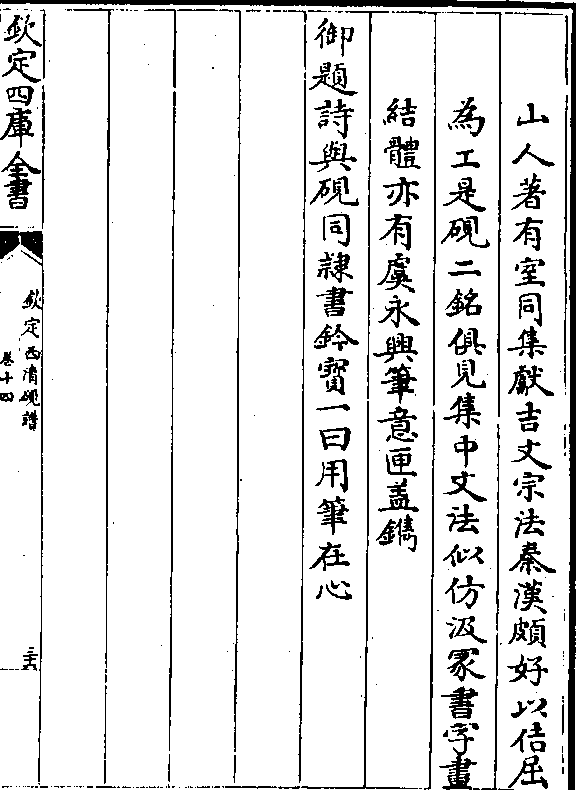 山人著有室同集獻吉文宗法秦漢頗好以佶屈
為工是硯二銘俱見集中文法似仿汲冢書字畫
結體亦有虞永興筆意匣蓋鐫
御題詩與硯同隸書鈐寶一曰用筆在心
欽定四庫全書
欽定西清硯譜
卷十四
三六